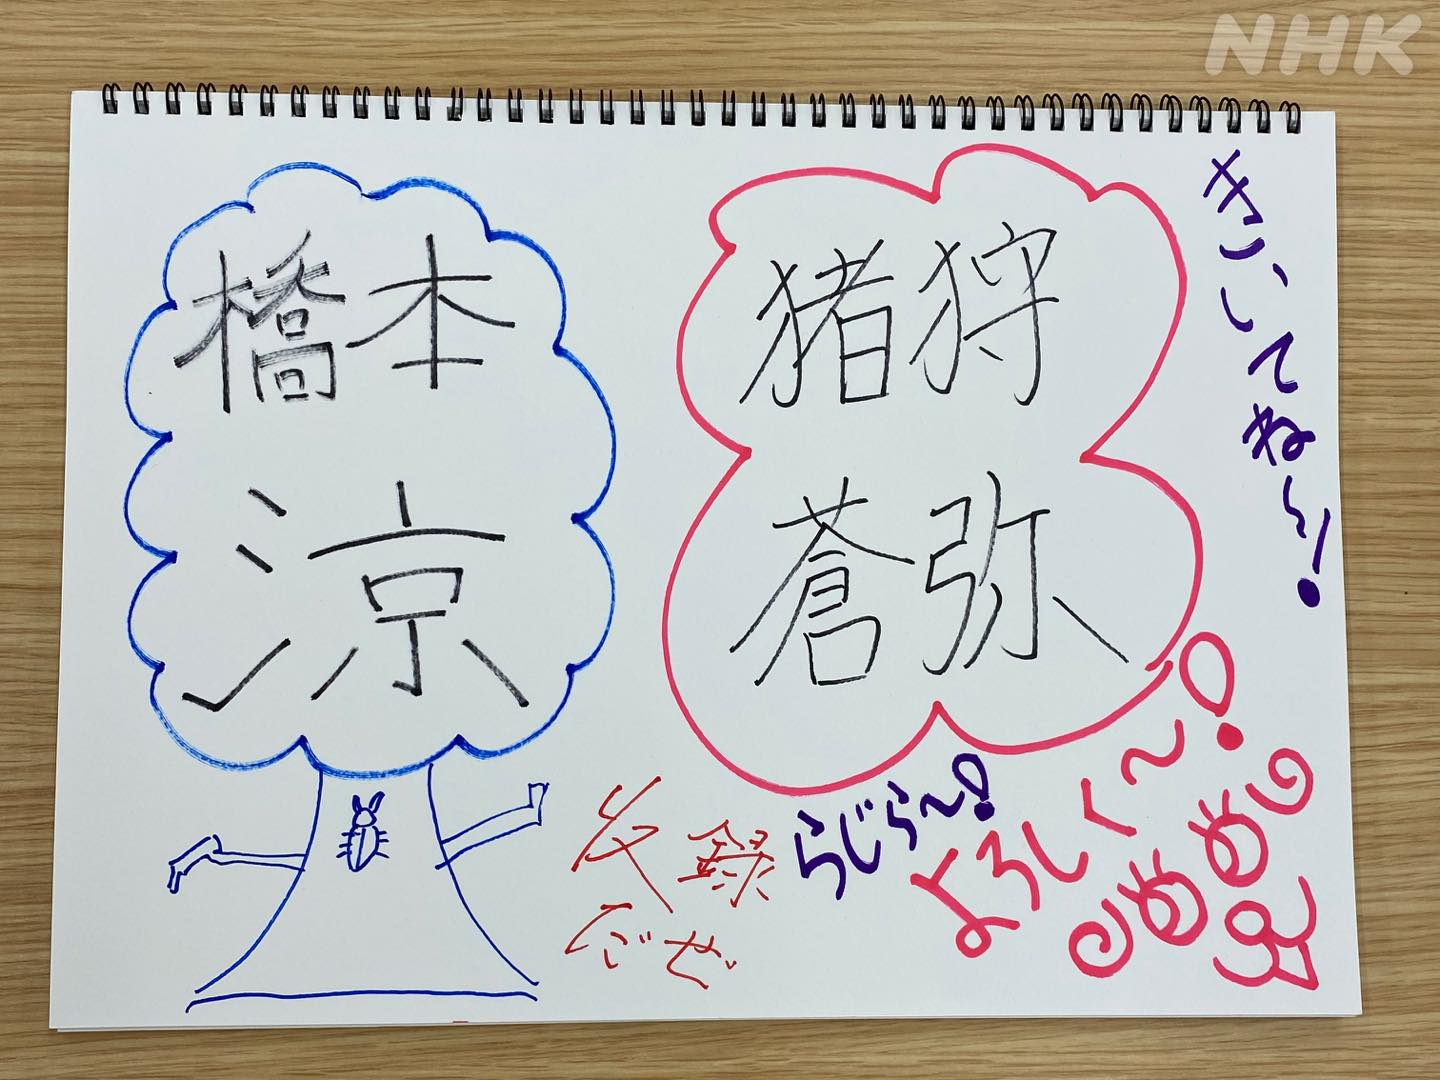 NHK
橋本
涼
猪狩
蒼弥
きいてね〜!
収録
だぜ
らじら〜!
よろしく〜!